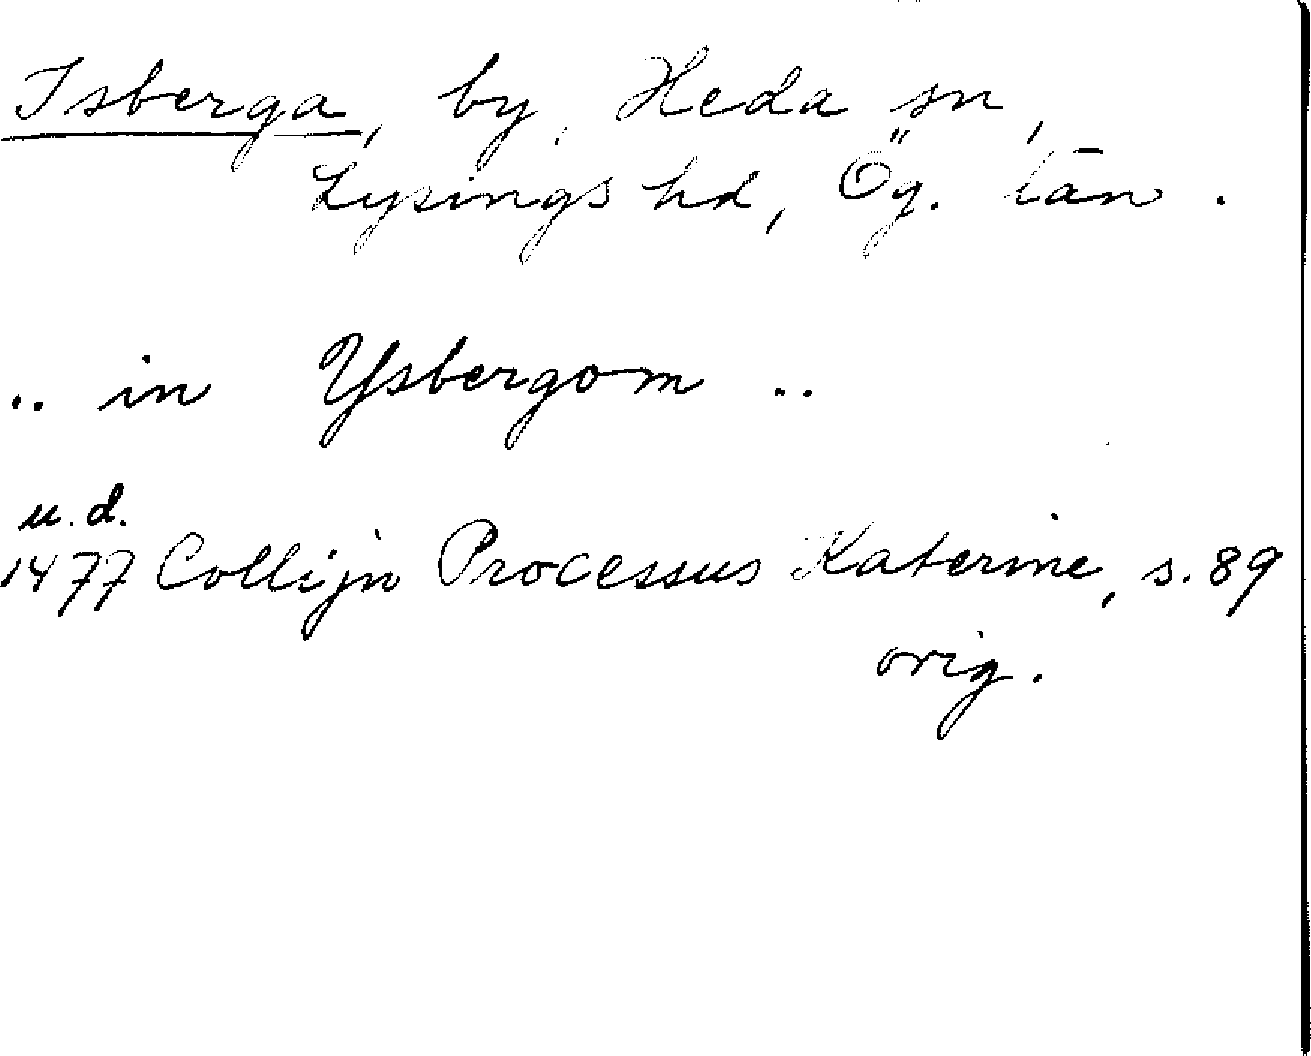 Isberga, by, Heda sn,
Lysings hd, Ög. län.
.. in Ysbergom ..
u.d.
1477 Collijn Processus Katerine, s. 89
orig.